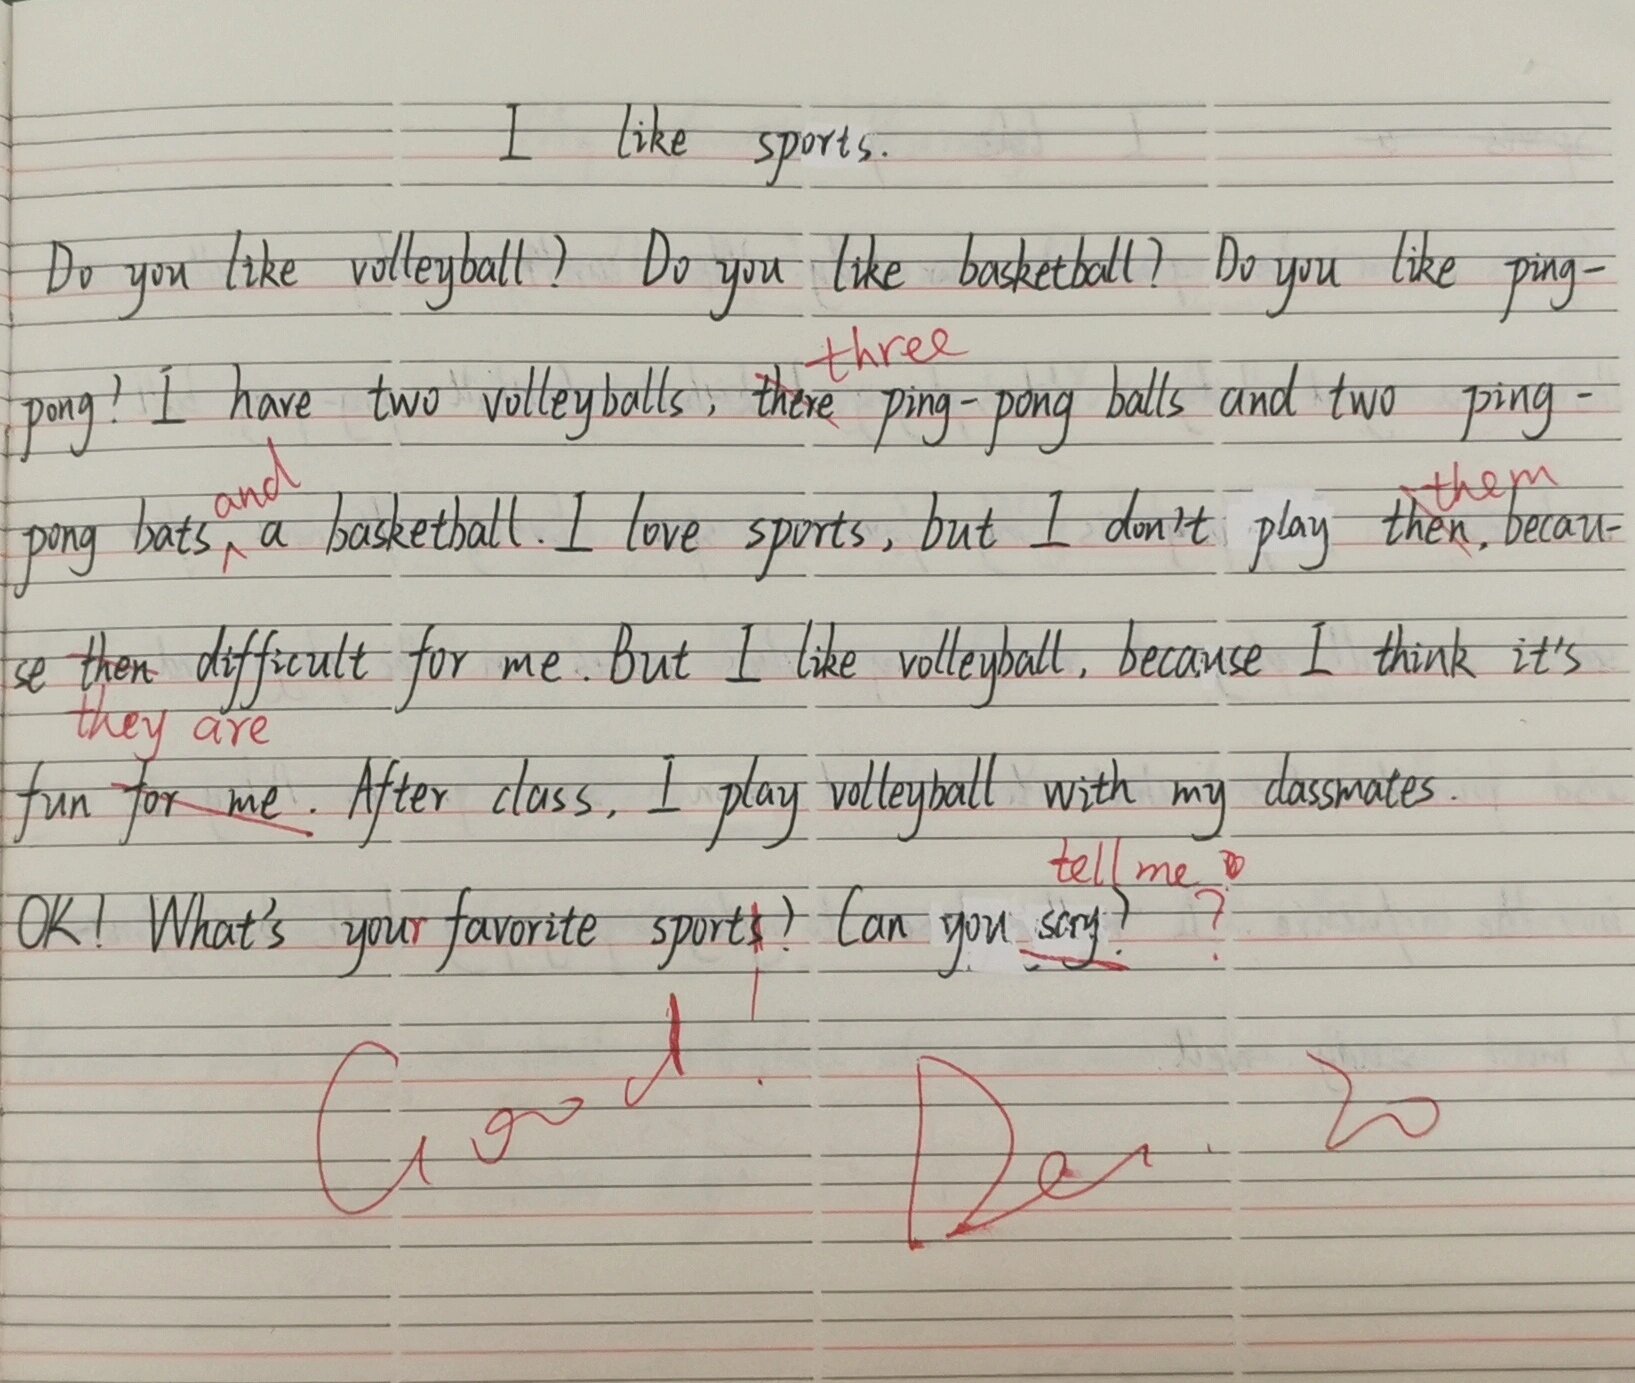 I like sports.
Do you like volleyball? Do you like basketball? Do you like ping-
three
pong? I have two volleyballs, there ping-pong balls and two ping-
and them
pong bats, a basketball. I love sports, but I don't play then, becau-
se then difficult for me. But I like volleyball, because I think it's
they are
fun for me. After class, I play volleyball with my classmates.
tell me
OK! What's your favorite sports? Can you say? ?
Good!